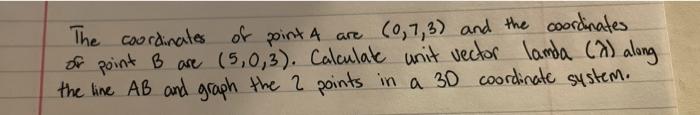 The coordinates of point A are (0,7,3) and the coordinates
of point B are (5,0,3). Calculate unit vector lamda (λ) along
the line AB and graph the 2 points in a 3D coordinate system.